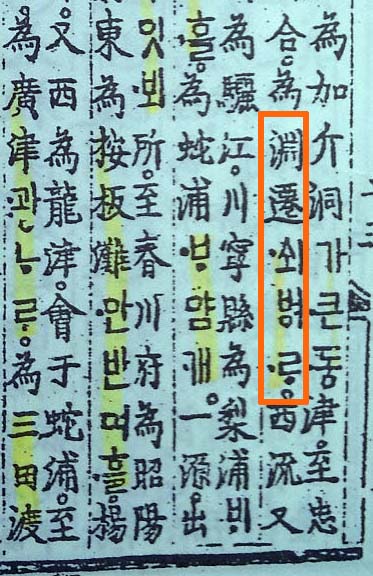 為加介洞가큰동津至忠
合。為淵遷쇠병ᄅᆞ。西流又
為驪江川寧縣為梨浦ᄇᆡ
為蛇浦ᄇᆞ얌개。一源出
所。至春川府為昭陽
東為按板灘안반여흘。楊
又西為龍津。會于蛇浦。至
為廣津광ᄂᆞᄅᆞ。為三田渡